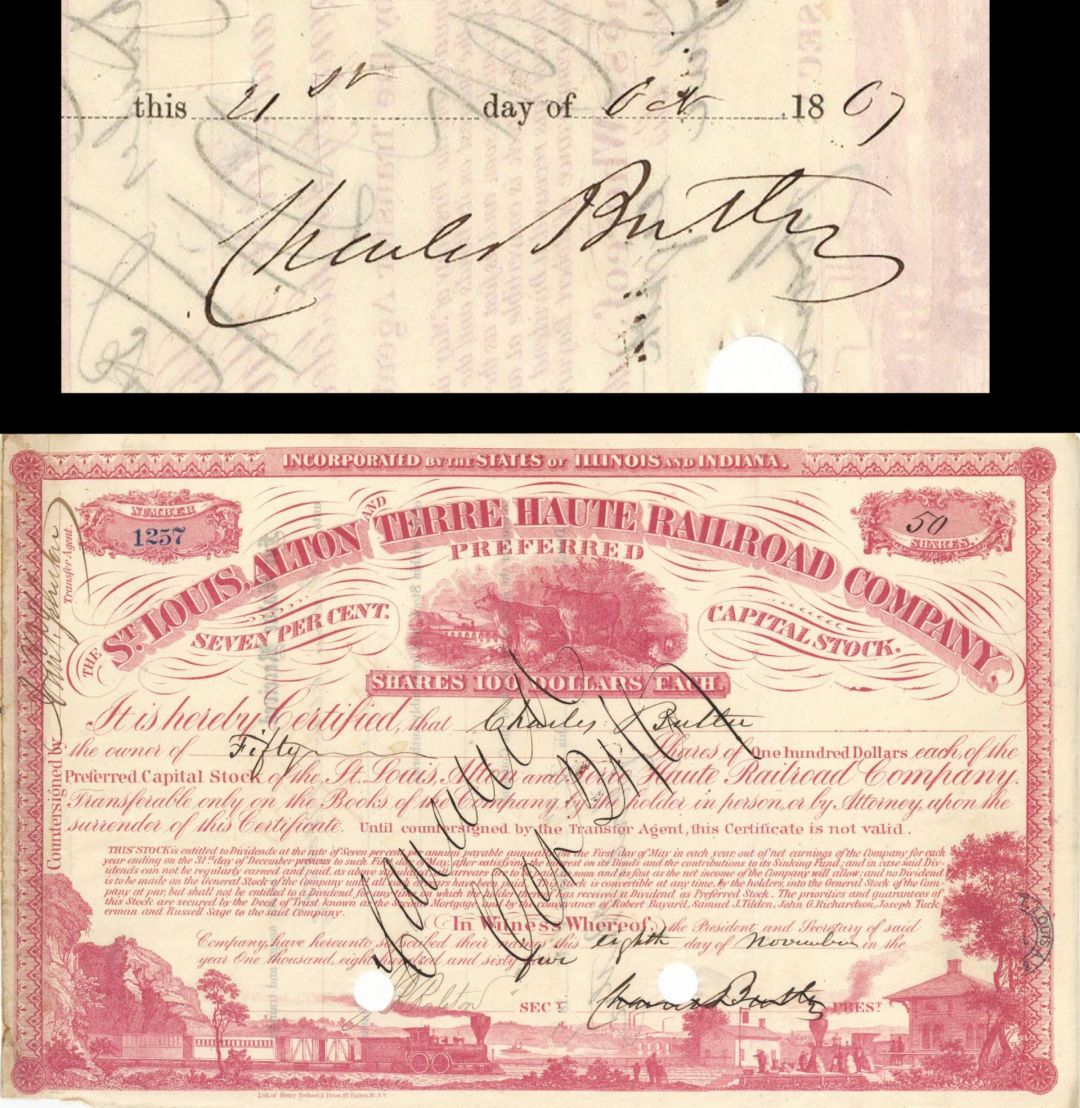 this 21st day of Oct 1867
Charles Butler
INCORPORATED BY THE STATES OF ILLINOIS AND INDIANA.
NUMBER
1257
50
SHARES.
THE ST. LOUIS, ALTON AND TERRE HAUTE RAILROAD COMPANY,
PREFERRED
SEVEN PER CENT.
CAPITAL STOCK.
SHARES 100 DOLLARS EACH.
Countersigned by
Transfer Agent.
It is hereby Certified, that Charles Butler
the owner of Fifty Shares of One hundred Dollars each, of the
Preferred Capital Stock of the St. Louis, Alton and Terre Haute Railroad Company.
Transferable only on the Books of the Company by the holder in person, or by Attorney, upon the
surrender of this Certificate. Until countersigned by the Transfer Agent, this Certificate is not valid.
THIS STOCK is entitled to Dividends at the rate of Seven percent per annum payable annually on the First day of May in each year, out of net earnings of the Company for each
year ending on the 31st day of December previous to such First day of May after satisfying the interest on its Bonds and the contributions to its Sinking Fund; and in case said Div-
idends can not be regularly earned and paid, as above stated, the arrears soon and as fast as the net income of the Company will allow; and no Dividend
is to be made on the General Stock of the Company until all such arrears have been paid. This Stock is convertible at any time, by the holders, into the General Stock of the Com-
pany at par but shall not be entitled to a Dividend, in the year in which has received a Dividend as Preferred Stock. The priorities and guarantees of
this Stock are secured by the Deed of Trust known as the Second Mortgage and by the conveyance of Robert Bayard, Samuel J. Tilden, John G. Richardson, Joseph Tuck
erman and Russell Sage to the said Company.
In Witness Whereof, the President, and Secretary of said
Company, have hereunto subscribed their names this eighth day of November in the
year One thousand, eight hundred and sixty five
Cancelled
SECY.
Charles Butler PREST.
Lith. of Henry Seibert & Bros. 97 Fulton St. N.Y.